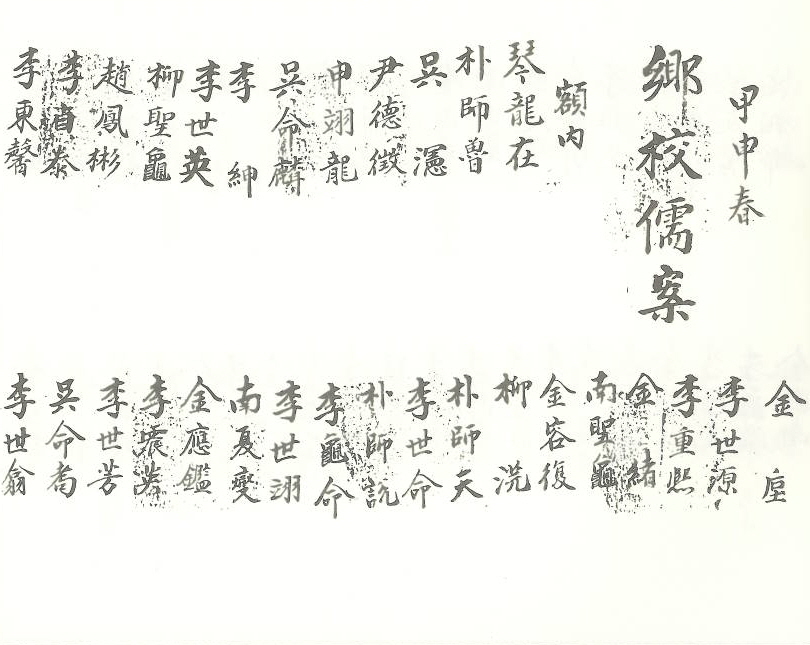 甲申春
鄉校儒案
額內
琴龍在
朴師魯
吳 濍
尹德徵
申翊龍
吳命麟
李 紳
李世英
柳聖龜
趙鳳彬
李 泰
李東馨
金
李世源
李重熙
金 緒
南聖龜
金容復
柳 洸
朴師天
李世命
朴師說
李龜命
李世翊
南夏變
金應鑑
李震英
李世芳
吳命喬
李世翕